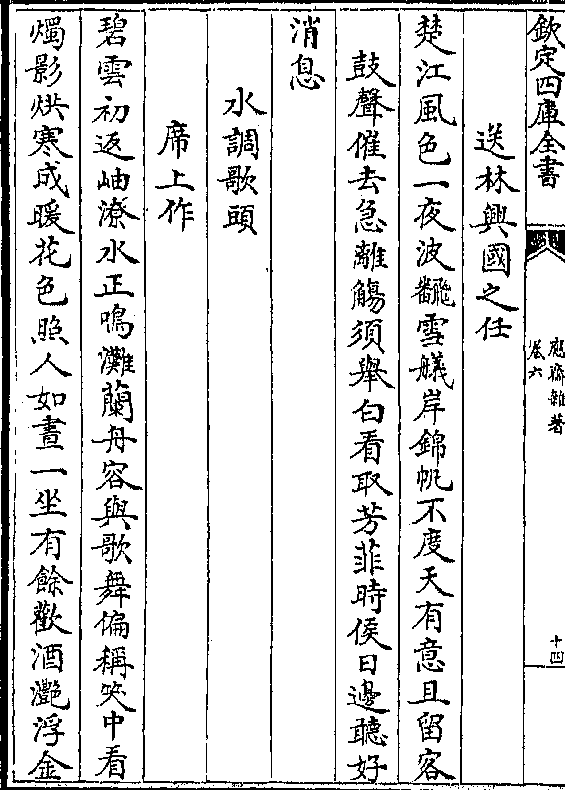 欽定四庫全書
應齋雜著
卷六
十四
送林興國之任
楚江風色一夜波飜雪艤岸錦帆不度天有意且留客
鼓聲催去急離觴須舉白看取芳菲時侯日邊聽好
消息
水調歌頭
席上作
碧雲初返岫潦水正鳴灘蘭舟容與歌舞偏稱笑中看
燭影烘寒成暖花色照人如晝一坐有餘歡酒灔浮金